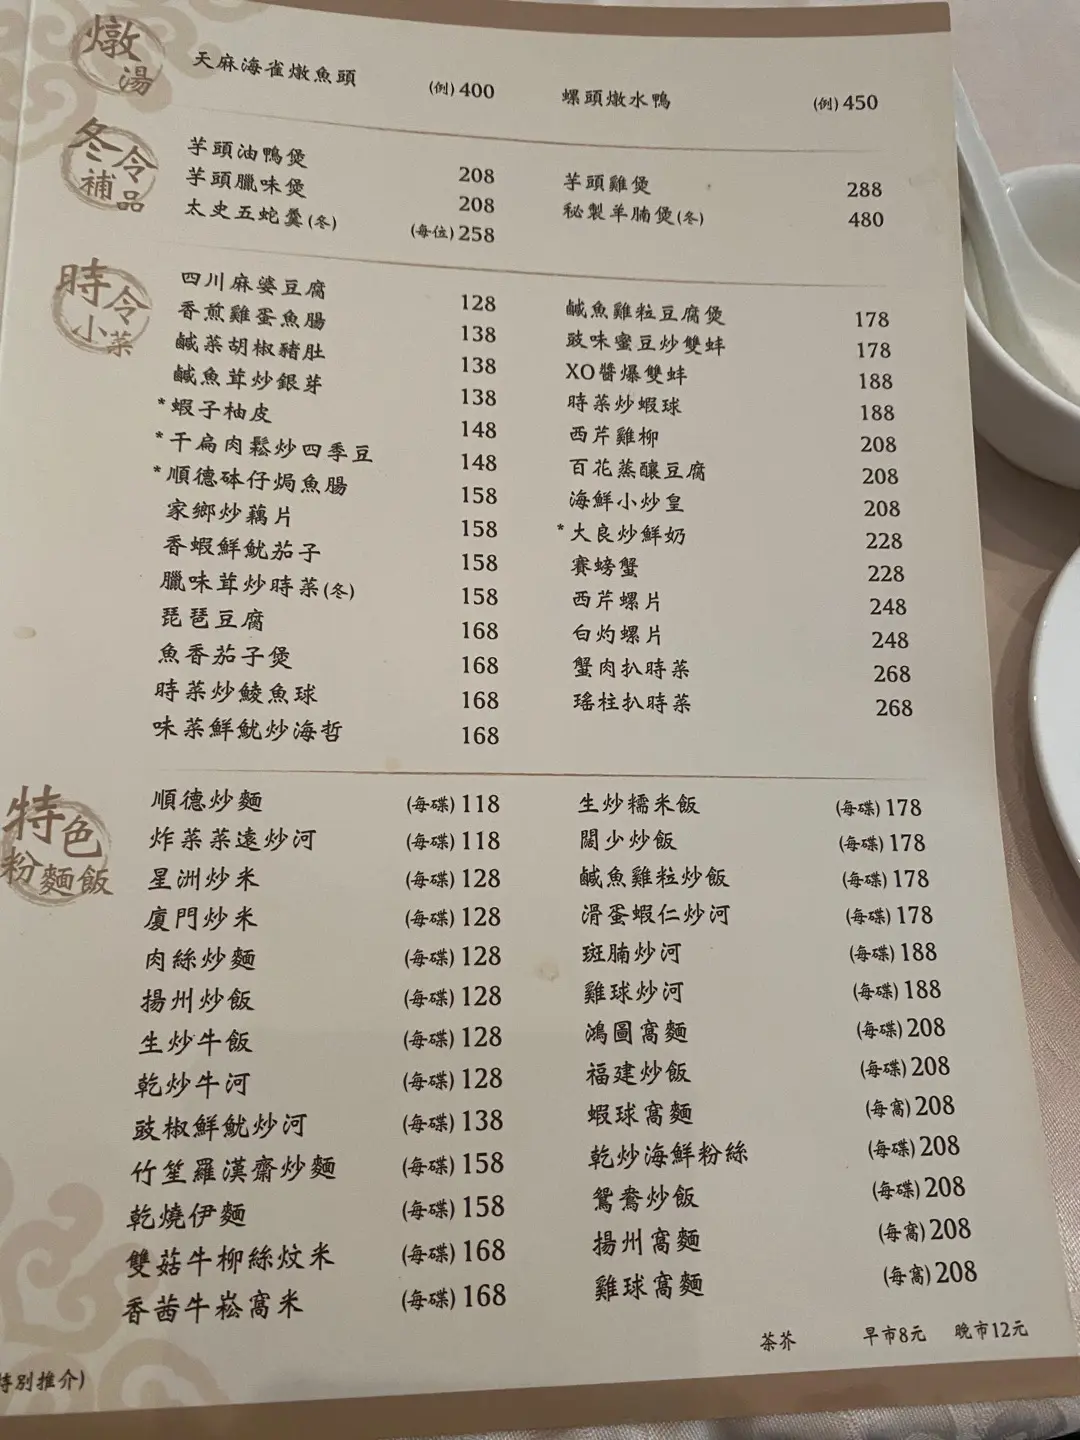 燉湯
天麻海雀燉魚頭 (例) 400
螺頭燉水鴨 (例) 450
冬令補品
芋頭油鴨煲 208
芋頭臘味煲 208
太史五蛇羹(冬) (每位) 258
芋頭雞煲 288
秘製羊腩煲(冬) 480
時令小菜
四川麻婆豆腐 128
香煎雞蛋魚腸 138
鹹菜胡椒豬肚 138
鹹魚茸炒銀芽 138
*蝦子柚皮 148
*干扁肉鬆炒四季豆 148
*順德砵仔焗魚腸 158
家鄉炒藕片 158
香蝦鮮魷茄子 158
臘味茸炒時菜(冬) 158
琵琶豆腐 168
魚香茄子煲 168
時菜炒鯪魚球 168
味菜鮮魷炒海哲 168
鹹魚雞粒豆腐煲 178
豉味蜜豆炒雙蚌 178
XO醬爆雙蚌 188
時菜炒蝦球 188
西芹雞柳 208
百花蒸釀豆腐 208
海鮮小炒皇 208
*大良炒鮮奶 228
賽螃蟹 228
西芹螺片 248
白灼螺片 248
蟹肉扒時菜 268
瑤柱扒時菜 268
特色粉麵飯
順德炒麵 (每碟) 118
炸菜菜遠炒河 (每碟) 118
星洲炒米 (每碟) 128
廈門炒米 (每碟) 128
肉絲炒麵 (每碟) 128
揚州炒飯 (每碟) 128
生炒牛飯 (每碟) 128
乾炒牛河 (每碟) 128
豉椒鮮魷炒河 (每碟) 138
竹笙羅漢齋炒麵 (每碟) 158
乾燒伊麵 (每碟) 158
雙菇牛柳絲炆米 (每碟) 168
香茜牛崧窩米 (每碟) 168
生炒糯米飯 (每碟) 178
闊少炒飯 (每碟) 178
鹹魚雞粒炒飯 (每碟) 178
滑蛋蝦仁炒河 (每碟) 178
斑腩炒河 (每碟) 188
雞球炒河 (每碟) 188
鴻圖窩麵 (每碟) 208
福建炒飯 (每碟) 208
蝦球窩麵 (每窩) 208
乾炒海鮮粉絲 (每碟) 208
鴛鴦炒飯 (每碟) 208
揚州窩麵 (每窩) 208
雞球窩麵 (每窩) 208
茶芥 早市8元 晚市12元
特別推介)